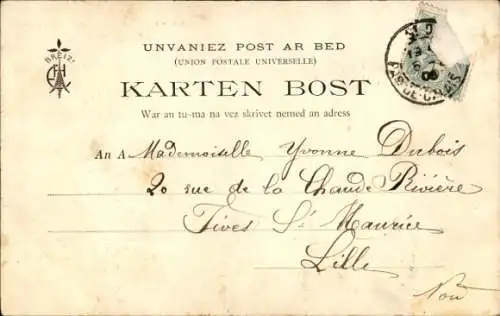 BREIZ
UNVANIEZ POST AR BED
(UNION POSTALE UNIVERSELLE)
KARTEN BOST
War an tu-ma na vez skrivet nemed an adress
An A Mademoiselle Yvonne Dubois
20 rue de la Chaude Rivière
Fives St Maurice
Lille
PAS-DE-CALAIS